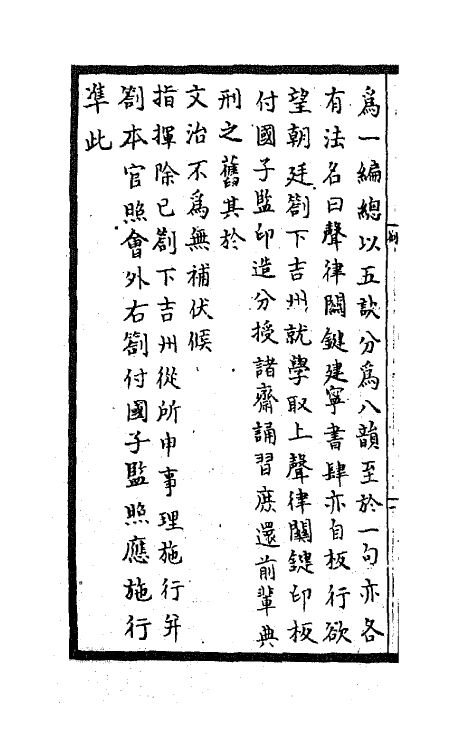 爲一編總以五訣分爲八韻至於一句亦各
有法名曰聲律關鍵建寧書肆亦自板行欲
望朝廷劄下吉州就學取上聲律關鍵印板
付國子監印造分授諸齋誦習庶還前輩典
刑之舊其於
文治不爲無補伏候
指揮除已劄下吉州從所申事理施行并
劄本官照會外右劄付國子監照應施行
準此